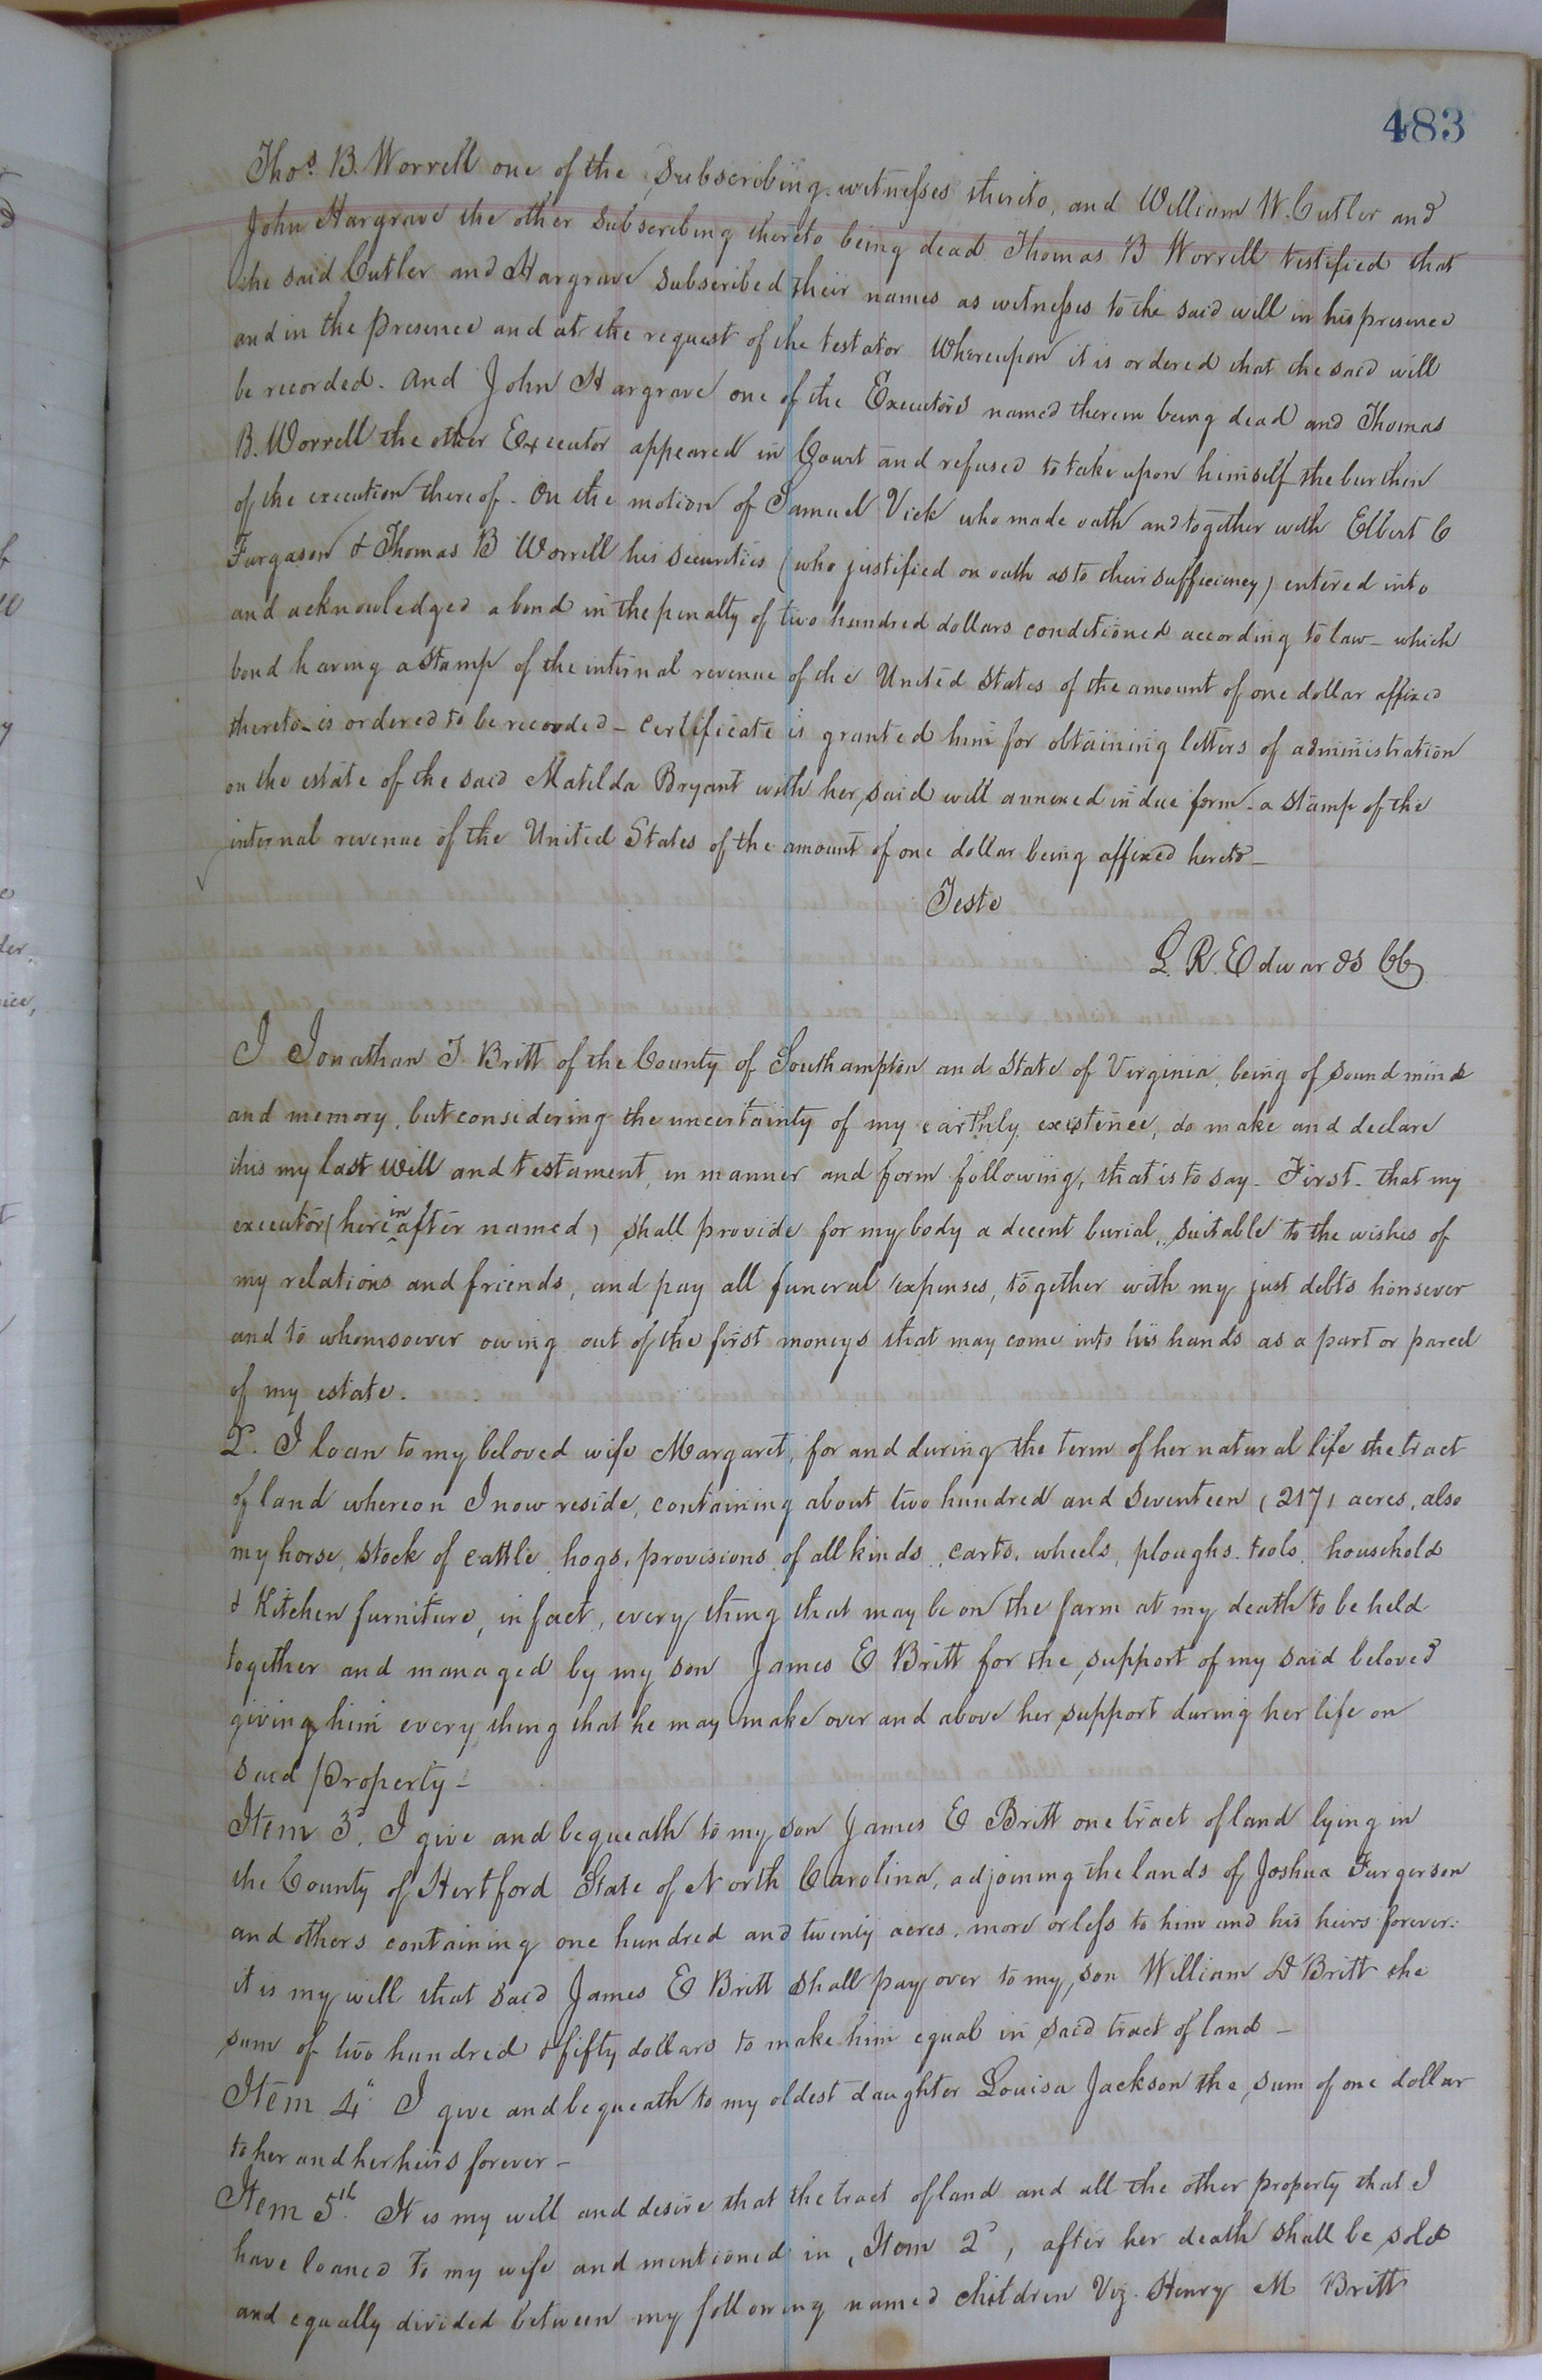 483
Thos. B. Worrell one of the Subscribing witnesses thereto, and William W. Cutler and
John Hargrave the other Subscribing thereto being dead Thomas B Worrell testified that
the said Cutler and Hargrave subscribed their names as witnesses to the said will in his presence
and in the presence and at the request of the testator Whereupon it is ordered that the said will
be recorded. And John Hargrave one of the Executors named therein being dead and Thomas
B. Worrell the other Executor appeared in Court and refused to take upon himself the burthen
of the execution thereof. On the motion of Samuel Vick who made oath and together with Elbert C
Furgason & Thomas B Worrell his securities (who justified on oath as to their sufficiency) entered into
and acknowledged a bond in the penalty of two hundred dollars conditioned according to law - which
bond having a stamp of the internal revenue of the United States of the amount of one dollar affixed
thereto - is ordered to be recorded - Certificate is granted him for obtaining letters of administration
on the estate of the said Matilda Bryant with her said will annexed in due form - a stamp of the
internal revenue of the United States of the amount of one dollar being affixed hereto -
Teste
L. R. Edwards CC
I Jonathan T. Britt of the County of Southampton and State of Virginia, being of sound mind
and memory, but considering the uncertainty of my earthly existence, do make and declare
this my last will and testament, in manner and form following, that is to say - First - that my
executor (herein after named) shall provide for my body a decent burial, suitable to the wishes of
my relations and friends, and pay all funeral expenses, together with my just debts honsever
and to whomsoever owing out of the first moneys that may come into his hands as a part or parcel
of my estate.
2d. I loan to my beloved wife Margaret, for and during the term of her natural life the tract
of land whereon I now reside, containing about two hundred and seventeen (217) acres, also
my horse, stock of cattle, hogs, provisions of all kinds, carts, wheels, ploughs, tools, household
& Kitchen furniture, in fact, every thing that may be on the farm at my death to be held
together and managed by my son James E Britt for the support of my said beloved
giving him every thing that he may make over and above her support during her life on
said Property -
Item 3d. I give and bequeath to my son James E Britt one tract of land lying in
the County of Hertford State of North Carolina, adjoining the lands of Joshua Furgerson
and others containing one hundred and twenty acres, more or less to him and his heirs forever.
it is my will that said James E Britt shall pay over to my son William D Britt the
sum of two hundred & fifty dollars to make him equal in said tract of land -
Item 4" I give and bequeath to my oldest daughter Louisa Jackson the sum of one dollar
to her and her heirs forever -
Item 5th. It is my will and desire that the tract of land and all the other property that I
have loaned to my wife and mentioned in, Item 2d, after her death shall be sold
and equally divided between my following named children Viz. Henry M Britt